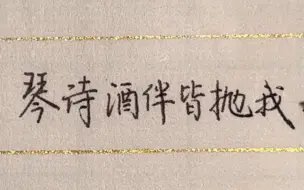 琴诗酒伴皆抛我